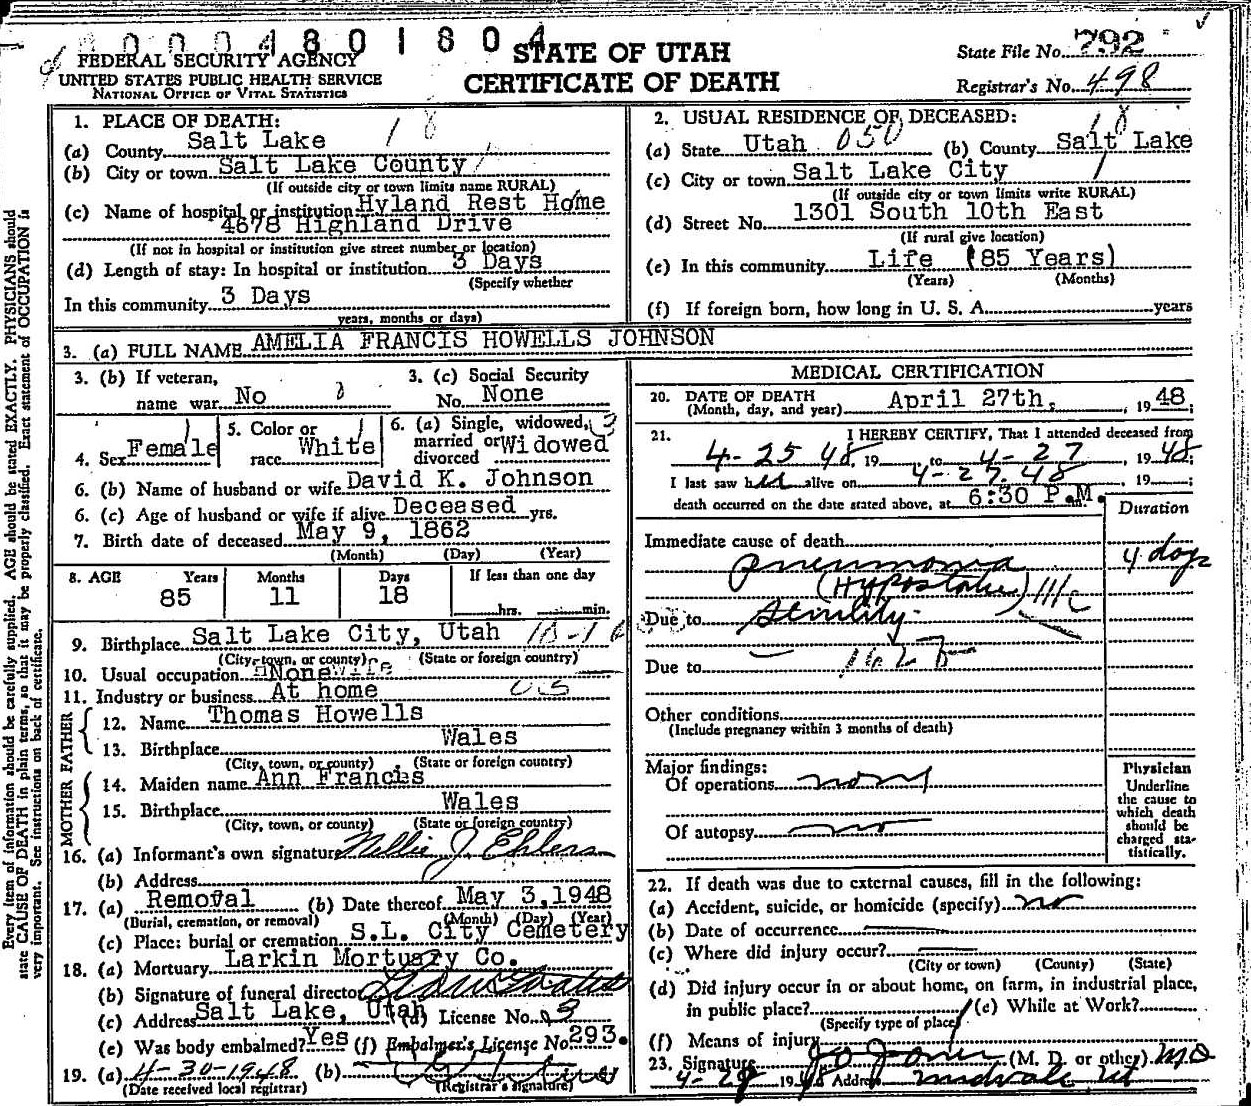 0 0 0 4 8 0 1 8 0 4
FEDERAL SECURITY AGENCY
UNITED STATES PUBLIC HEALTH SERVICE
NATIONAL OFFICE OF VITAL STATISTICS
STATE OF UTAH
CERTIFICATE OF DEATH
State File No. 792
Registrar's No. 498
1. PLACE OF DEATH:
(a) County Salt Lake 18
(b) City or town Salt Lake County
(If outside city or town limits name RURAL)
(c) Name of hospital or institution Hyland Rest Home
4678 Highland Drive
(If not in hospital or institution give street number or location)
(d) Length of stay: In hospital or institution 3 Days
(Specify whether
In this community 3 Days
years, months or days)
2. USUAL RESIDENCE OF DECEASED:
(a) State Utah 050 (b) County Salt Lake 18
(c) City or town Salt Lake City 1
(If outside city or town limits write RURAL)
(d) Street No. 1301 South 10th East
(If rural give location)
(e) In this community Life (85 Years)
(Years) (Months)
(f) If foreign born, how long in U. S. A. years
3. (a) FULL NAME AMELIA FRANCIS HOWELLS JOHNSON
3. (b) If veteran,
name war No
3. (c) Social Security
No. None
4. Sex Female
5. Color or
race White
6. (a) Single, widowed, 3
married or Widowed
divorced
6. (b) Name of husband or wife David K. Johnson
6. (c) Age of husband or wife if alive Deceased yrs.
7. Birth date of deceased May 9, 1862
(Month) (Day) (Year)
8. AGE Years Months Days If less than one day
85 11 18 hrs. min.
9. Birthplace Salt Lake City, Utah
(City, town, or county) (State or foreign country)
10. Usual occupation None
11. Industry or business At home
FATHER
12. Name Thomas Howells
13. Birthplace Wales
(City, town, or county) (State or foreign country)
MOTHER
14. Maiden name Ann Francis
15. Birthplace Wales
(City, town, or county) (State or foreign country)
16. (a) Informant's own signature Nellie J. Ehlers
(b) Address
17. (a) Removal (b) Date thereof May 3, 1948
(Burial, cremation, or removal) (Month) (Day) (Year)
(c) Place: burial or cremation S.L. City Cemetery
18. (a) Mortuary Larkin Mortuary Co.
(b) Signature of funeral director
(c) Address Salt Lake, Utah (d) License No.
(e) Was body embalmed? Yes (f) Embalmer's License No. 293.
19. (a) 4-30-1948 (b)
(Date received local registrar) (Registrar's signature)
MEDICAL CERTIFICATION
20. DATE OF DEATH
(Month, day, and year) April 27th, , 19 48;
21. I HEREBY CERTIFY, That I attended deceased from
4-25 48, 19 to 4-27 , 19 48
I last saw her alive on 4-27-48 , 19 ;
death occurred on the date stated above, at 6:30 P.M.
Duration
Immediate cause of death
Pneumonia 4 days
(Hypostatic)
Due to Senility
Due to 162
Other conditions
(Include pregnancy within 3 months of death)
Major findings:
Of operations none
Of autopsy no
Physician
Underline
the cause to
which death
should be
charged sta-
tistically.
22. If death was due to external causes, fill in the following:
(a) Accident, suicide, or homicide (specify) no
(b) Date of occurrence
(c) Where did injury occur?
(City or town) (County) (State)
(d) Did injury occur in or about home, on farm, in industrial place,
in public place? (e) While at Work?
(Specify type of place)
(f) Means of injury
23. Signature JO Jones (M. D. or other) MD
4-29 1948 Address Midvale Ut
Every item of information should be carefully supplied. AGE should be stated EXACTLY. PHYSICIANS should
state CAUSE OF DEATH in plain terms, so that it may be properly classified. Exact statement of OCCUPATION is
very important. See instructions on back of certificate.